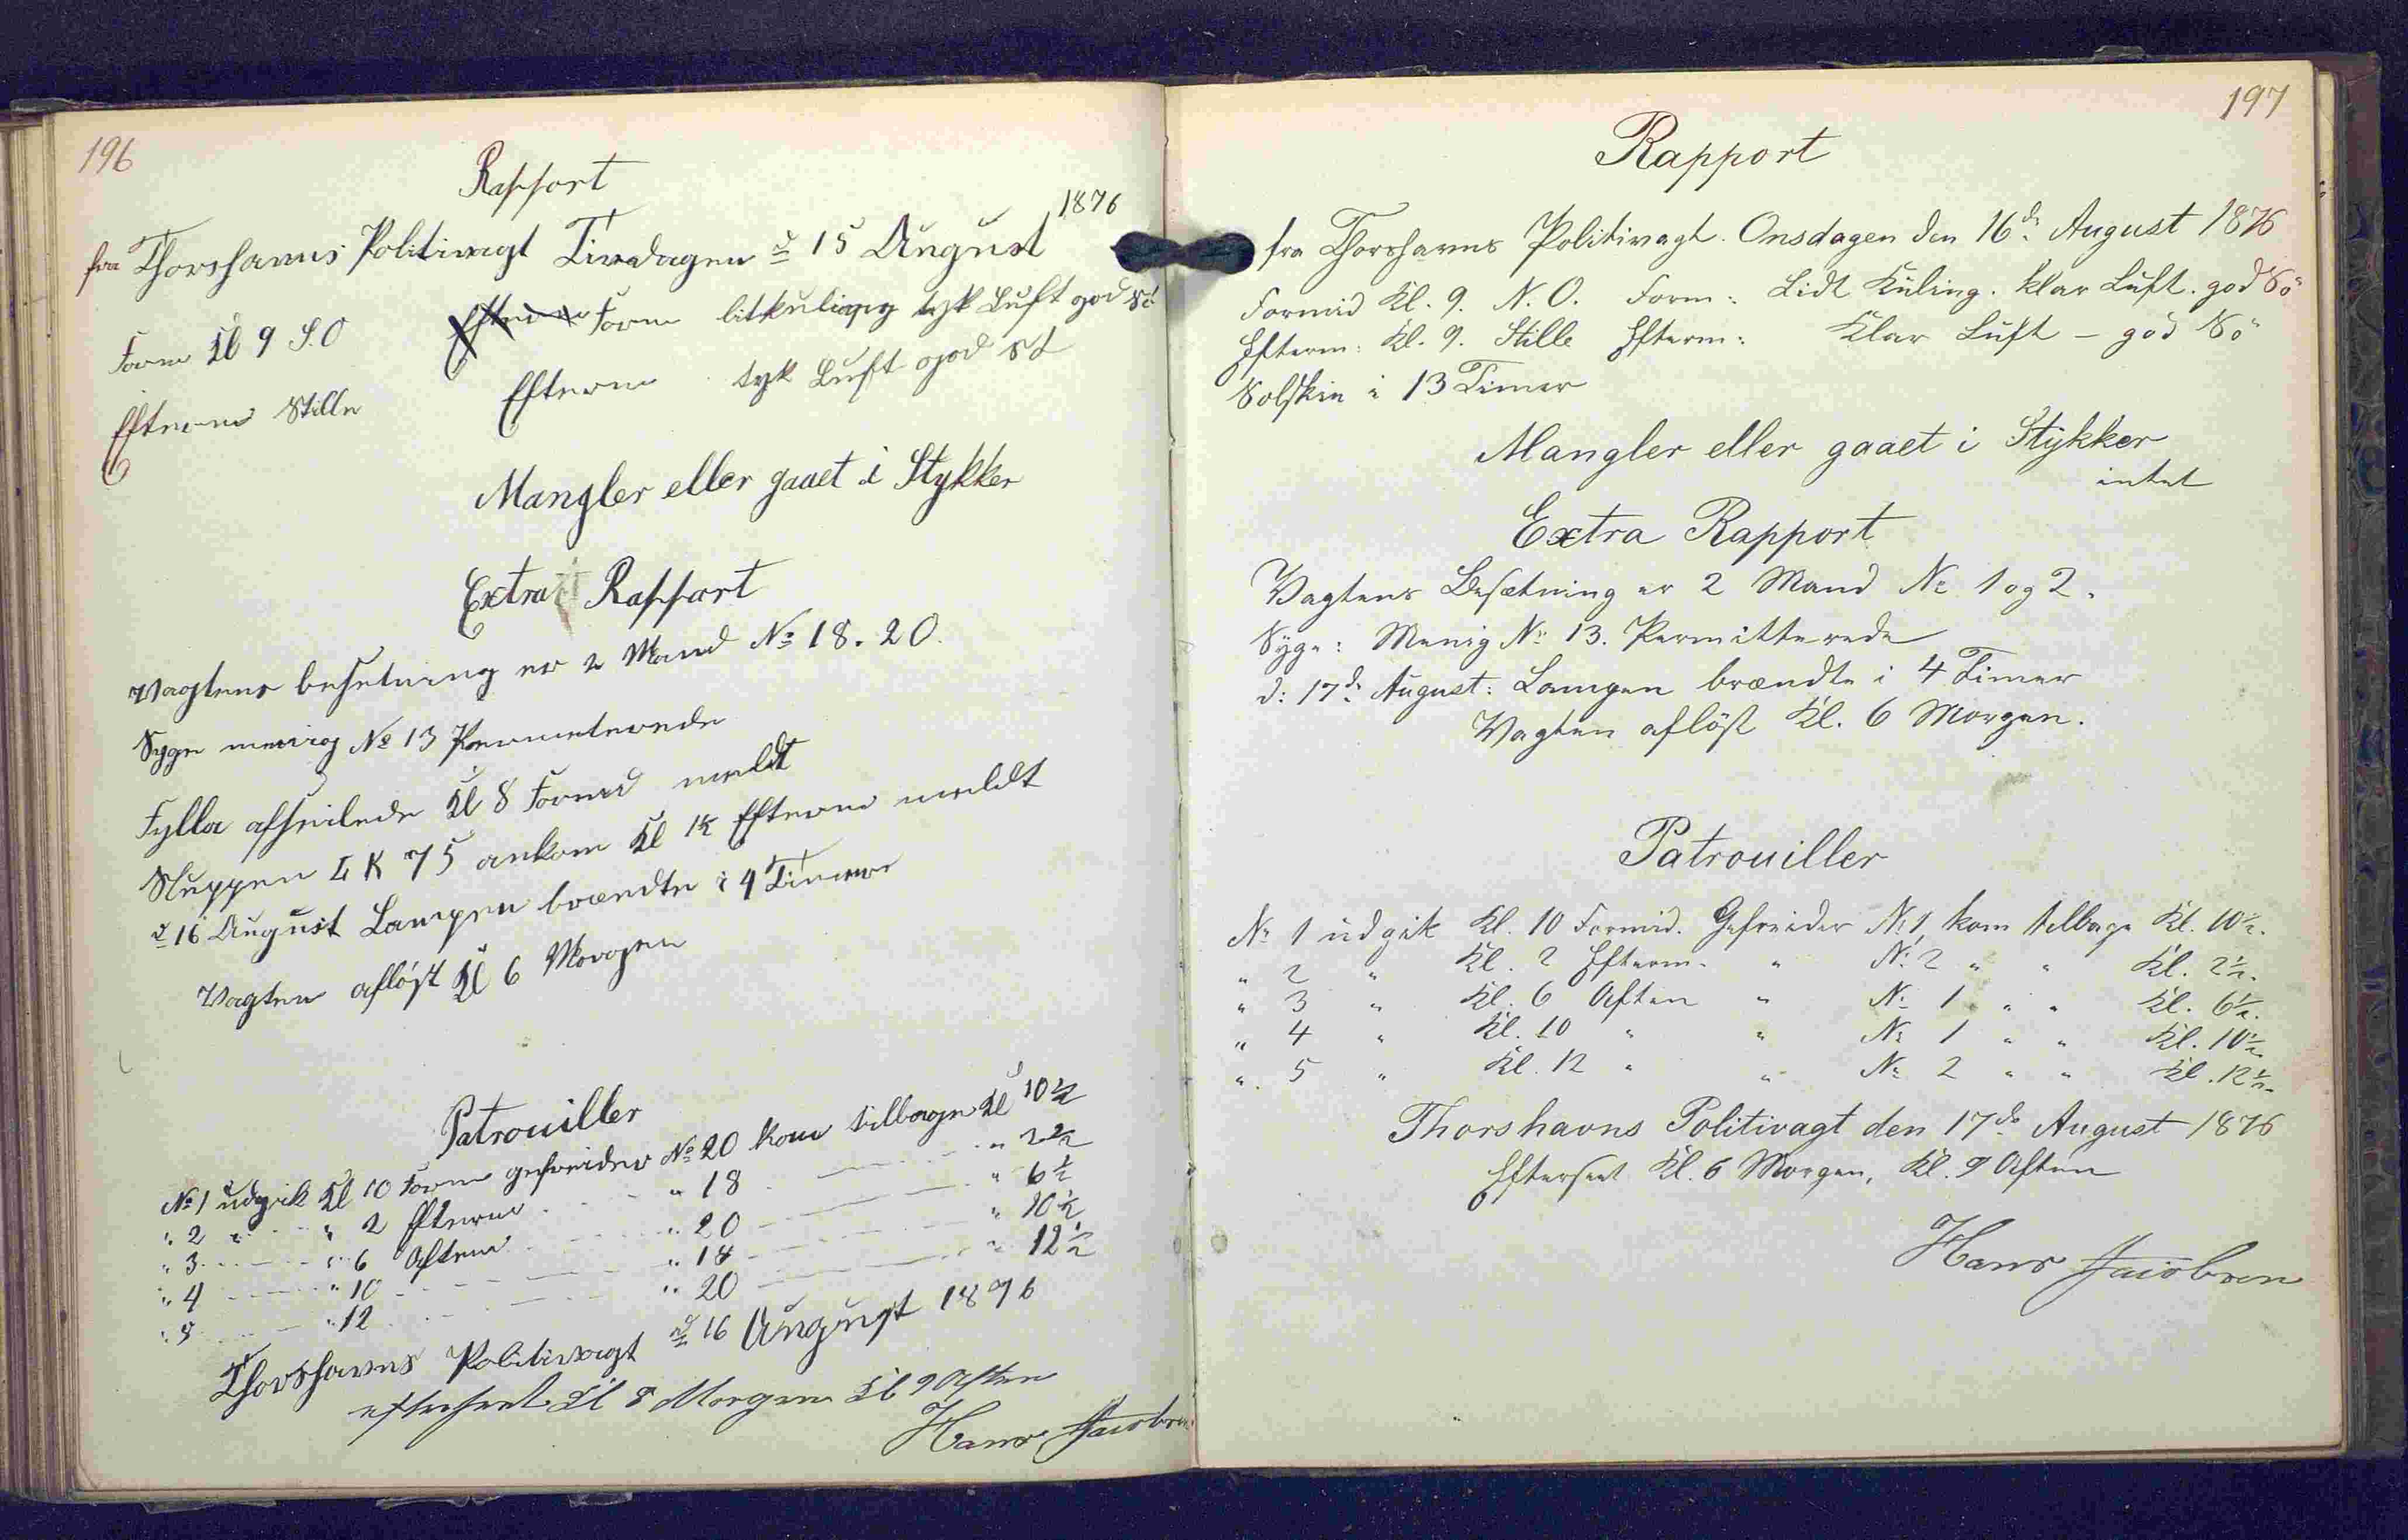 196
Rapport
fra Thorshavns Politivagt Tirsdagen d 15 August 1876
Form Kl 9 S.O Form litkuling tyk Luft god Sö
Efterm Stille Efterm tyk Luft god Sö
Mangler eller gaaet i Stykker
Extra Rapport
Vagtens besetning er 2 Mand No 18. 20.
Syge menig No 13 Permeterede
Fylla afseilede Kl 8 Formd meldt
Sluppen LK 75 ankom Kl Efterm meldt
d 16 August Lampen brændte i 4 Timer
Vagten afløst Kl 6 Morgen
Patrouiller
No 1 udgik Kl 10 Form gefreider No 20 kom tilbage Kl 10 1/2
" 2 " " 2 Efterm " 18 " 2 1/2
" 3 " 6 Aften " 20 " 6 1/2
" 4 " 10 " 18 " 10 1/2
" 5 " 12 " 20 " 12 1/2
Thorshavns Politivagt d 16 August 1876
efterseet Kl 8 Morgen Kl 9 Aften
Hans Jacobsen
197
Rapport
fra Thorshavns Politivagt. Onsdagen den 16de August 1876
Formid Kl. 9. N.O. Form: Lidt Kuling. klar Luft. god Sö
Efterm: Kl. 9. Stille Efterm: Klar Luft – god Sö
Solskin i 13 Timer
Mangler eller gaaet i Stykker
intet
Extra Rapport
Vagtens Besætning er 2 Mand No 1 og 2.
Syge: Menig No 13. Permitterede
d: 17de August: Lampen brændte i 4 Timer
Vagten aflöst Kl. 6 Morgen.
Patrouiller
No 1 udgik Kl. 10 Formid. Gefreider No 1 kom tilbage Kl. 10 1/2.
" 2 " Kl. 2 Efterm. " No 2 " " Kl. 2 1/2.
" 3 " Kl. 6 Aften " No 1 " " Kl. 6 1/2.
" 4 " Kl. 10 " " No 1 " " Kl. 10 1/2
" 5 " Kl. 12 " " No 2 " " Kl. 12 1/2.
Thorshavns Politivagt den 17de August 1876
Efterseet Kl. 6 Morgen, Kl. 9 Aften
Hans Jacobsen